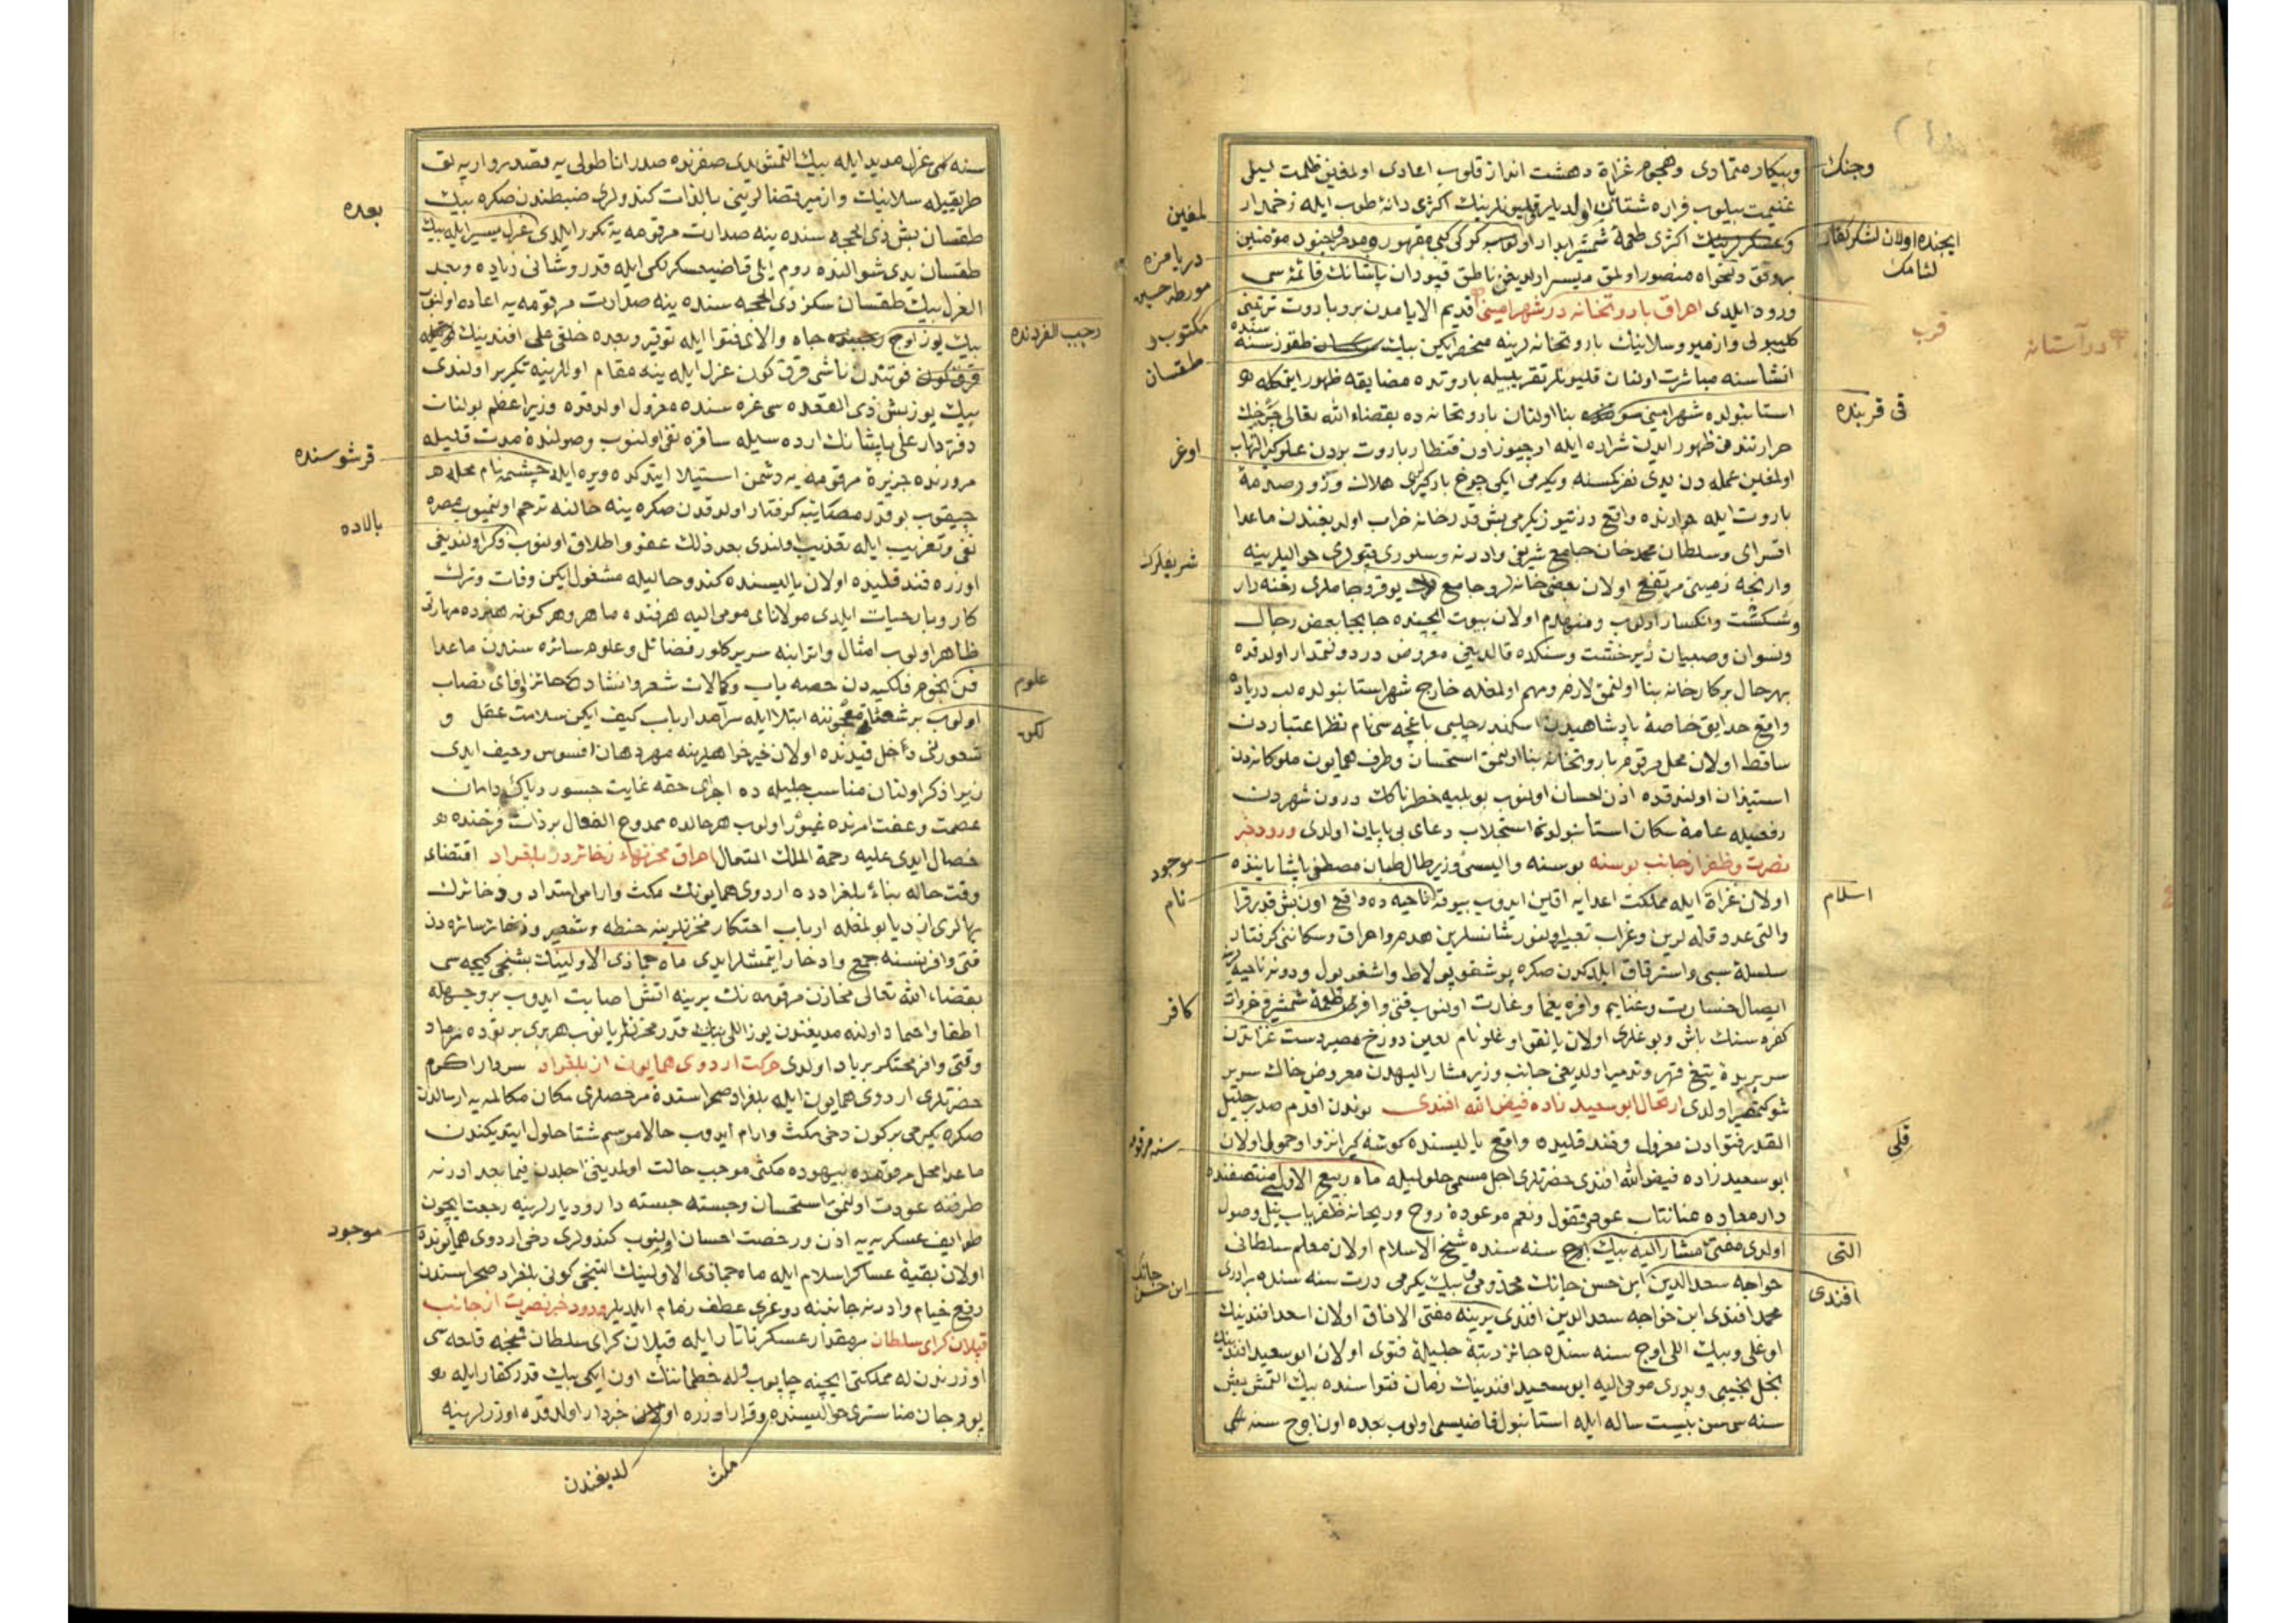 وپیکار متمادی وهجوم غزاة دهشت انداز قلوب اعادی اولمغین ظلمت لیلی
غنیمت بیلوب فراره شتابان اولدیلر قلیونلرینك اکثری دانۀ طوب ایله زخمدار
اکثری طعمۀ شمشیر ابدار اولوب کفار مقهور وجنود مؤمنین
بروفق دلخواه منصور اولمق میسر اولدیغن ناطق قپودان پاشانك قائمه سی
ورود ایلدی احراق باروتخانه در شهرامینی قدیم الایامدن برو باروت ترتیبی
کلیبولی وازمیر وسلانیك باروتخانه لرینه منحصر ایکن بیك طقوز سنه
انشاسنه مباشرت اولنان قلیونلر تقریبیله باروتده مضایقه ظهور ایتمکله
استانبولده شهرامینی بنا اولنان باروتخانه ده بقضاء الله تعالی چرخك
حرارتندن ظهور ایدن شراره ایله اوچیوز اون قنطار باروت بردن علوکیر التهاب
اولمغین عمله دن یدی نفر کمسنه ویکرمی ایکی چرخ بارکیری هلاك وزور صدمۀ
باروت ایله جوارنده واقع درتیوز یکرمی بش قدر خانه خراب اولدیغندن ماعدا
اقسرای وسلطان محمد خان جامع شریفی وادرنه وسلوری قپولری حوالیلرینه
وارنجه زمینی مرتفع اولان بعض خانه لر وجامع یوقرو جاملری رخنه دار
وشکست وانکسار اولوب ومنهدم اولان بیوت ایچنده جابجا بعض رجال
ونسوان وصبیان زیر خشت وسنکده قالدیغی معروض دردولتمدار اولدقده
بهرحال برکارخانه بنا اولنمق لازم ومهم اولمغله خارج شهر استانبولده لب دریاده
واقع حدایق خاصۀ پادشاهیدن اسکندر چلبی باغچه سی نام نظر اعتباردن
ساقط اولان محل مرقوم باروتخانه بنا اولنمق استحسان وطرف همایون ملوکانه دن
استیذان اولندقده اذن احسان اولنوب بو بلیه خطرناکك درون شهردن
رفعیله عامۀ سکان استانبولدن استجلاب دعای بی پایان اولدی ورود خبر
نصرت وظفر از جانب بوسنه بوسنه والیسی وزیر طال طبان مصطفی پاشا یاننده
اولان غزاة ایله مملکت اعدایه اقین ایدوب بیوقه ناحیه ده واقع اون بش قدر قرا
والتی عدد قله لرین وغراب تعبیر اولنور شانسلرین هدم واحراق وسکاننی کرفتار
سلسلۀ سبی واسترقاق ایلدکدن صکره
ایصال خسارت وغنایم وافره یغما وغارت اولنوب
کفره سنك باش وبوغلری اولان یانقو اوغلو نام لعین دوزخ مصیر دست غزاتدن
سر بریدۀ تیغ قهر وتدمیر اولدیغی جانب وزیر مشار الیهدن معروض خاك سریر
شوکتمصیر اولدی ارتحال ابو سعید زاده فیض الله افندی بوندن اقدم صدر جلیل
القدر فتوادن معزول وقندقلیده واقع یالیسنده کوشه کیر انزوا وخمول اولان
ابو سعید زاده فیض الله افندی حضرتلری اجل مسمی حلولیله ماه ربیع الاول منتصفنده
اولدی مفتئ مشار الیه بیك سنه سنده شیخ الاسلام اولان معلم سلطانی
خواجه سعد الدین ابن حسن جانك مخدومی وبیك یکرمی درت سنه سنده برادری
محمد افندی ابن خواجه سعد الدین افندی یرینه مفتی الافاق اولان اسعد افندینك
اوغلی وبیك اللی اوچ سنه سنده حائز رتبۀ جلیلۀ فتوی اولان ابو سعید افندینك
نجل نجیبی وپدری مومی الیه ابو سعید افندینك زمان فتواسنده بیك التمش بش
سنه سی سن بیست ساله ایله استانبول قاضیسی اولوب بعده اون اوچ سنه
وجنك
ایچنده اولان لشکر کفار
لمغین
دریا مزه
مکتوب
طقسان
قرب
در آستانه
اوغر
شریفلرك
موجود
نام
اسلام
کافر
التی
افندی
سنه کی عزل مدید ایله بیك التمش یدی صفرنده صدر اناطولی یه مقصد رو
طریقیله سلانیك وازمیر قضالرینی بالذات کندولری ضبطندن صکره بیك
طقسان بش ذی الحجه سنده ینه صدارت مرقومه یه تکرر ایلدی عزل میسر ایله بیك
طقسان یدی شوالنده روم ایلی قاضیعسکرلکی ایله قدر وشانی زیاده وبعد
العزل بیك طقسان سکز ذی الحجه سنده ینه صدارت مرقومه یه اعاده اولنوب
بیك یوز اوچ جاه والای فتوا ایله توقیر وبعده خلقی علی افندینك
فوتندن ناشی قرق کون عزل ایله ینه مقام اولرینه تکریر اولندی
بیك یوز بش ذی القعده سی غره سنده معزول اولدقده وزیر اعظم بولنان
دفتردار علی پاشانك اراده سیله ساقزه نفی اولنوب وصولنده مدت قلیله
مرورنده جزیرۀ مرقومه یه دشمن استیلا ایتدکده ویره ایله چشمه نام محله
چیقوب بو قدر مصائبه کرفتار اولدقدن صکره ینه حالنه ترحم اولنمیوب مصره
نفی وتغریب ایله تعذیب اولندی بعد ذلك عفو واطلاق اولنوب ذکر اولندیغی
اوزره قندقلیده اولان یالیسنده کندو حالیله مشغول ایکن وفات وترك
کار وبار حیات ایلدی مولانای مومی الیه هر فنده ماهر وهرکونه هنرده مهارتی
ظاهر اولوب امثال واقرانینه سریرکلور فضائل وعلوم سائره سندن ماعدا
فن نجوم فلکیه دن حصه یاب وکمالات شعر وانشاده حائز نصاب
اولوب برش معجوننه ابتلا ایله سرآمد ارباب کیف ایکن سلامت عقل و
شعورنی داخل قیدنده اولان خیرخواهلرینه مهر دهان افسوس وحیف ایدی
زیرا ذکر اولنان مناصب جلیله ده اجرای حقه غایت جسور وپاك دامان
عصمت وعفت امرنده غیور اولوب هرحالده ممدوح الفعال بر ذات فرخنده
خصال ایدی علیه رحمة الملك المتعال احراق مخزنهاء ذخائر در بلغراد اقتضای
وقت حاله بناءً بلغرادده اردوی همایونك مکث وارامی امتداد وذخائرك
بهالری ازدیاد بولمغله ارباب احتکار مخزنلرینه حنطه وشعیر وذخائر سائره دن
فتی وافر نسنه جمع وادخار ایتمشلر ایدی ماه جماذی الاولینك بشنجی کیجه سی
بقضاء الله تعالی مخازن مرقومه نك برینه اتش اصابت ایدوب بر وجهله
اطفا واخماد اولنه مدیغندن یوز اللی بیك قدر مخزنلر یانوب هر بری بر توده رماد
وفتی وافر محتکر برباد اولدی حرکت اردوی همایون از بلغراد سردار اکرم
حضرتلری اردوی همایون ایله بلغراد صحراسنده مرخصلری مکان مکالمه یه ارسالدن
صکره یکرمی بر کون دخی مکث وارام ایدوب حالا موسم شتا حلول ایتدیکندن
ماعدا محل مرقومده بیهوده مکثی موجب حالت اولمدیغی اجلدن فیما بعد ادرنه
طرفنه عودت اولنمق استحسان وجسته جسته دار ودیارلرینه رجعت ایچون
طوایف عسکریه یه اذن ورخصت احسان اولنوب کندولری دخی اردوی همایونده
اولان بقیۀ عساکر اسلام ایله ماه جماذی الاولینك التنجی کونی بلغراد صحراسندن
رفع خیام وادرنه جاننبه دوغری عطف زمام ایلدیلر ورود خبر نصرت از جانب
قپلان کرای سلطان برمقدار عسکر تاتار ایله قپلان کرای سلطان قمنچه قلعه سی
اوزرندن له مملکتی ایچینه چاپوب وله خطماننك اون ایکی بیك قدر کفار ایله
بوجان مناستری حوالیسنده وقرار اوزره خبردار اولدقده اوزرلرینه
بعده
رجب الفردنده
قرشوسنده
بالاده
علوم
لکن
موجود
مکث
لدیغندن